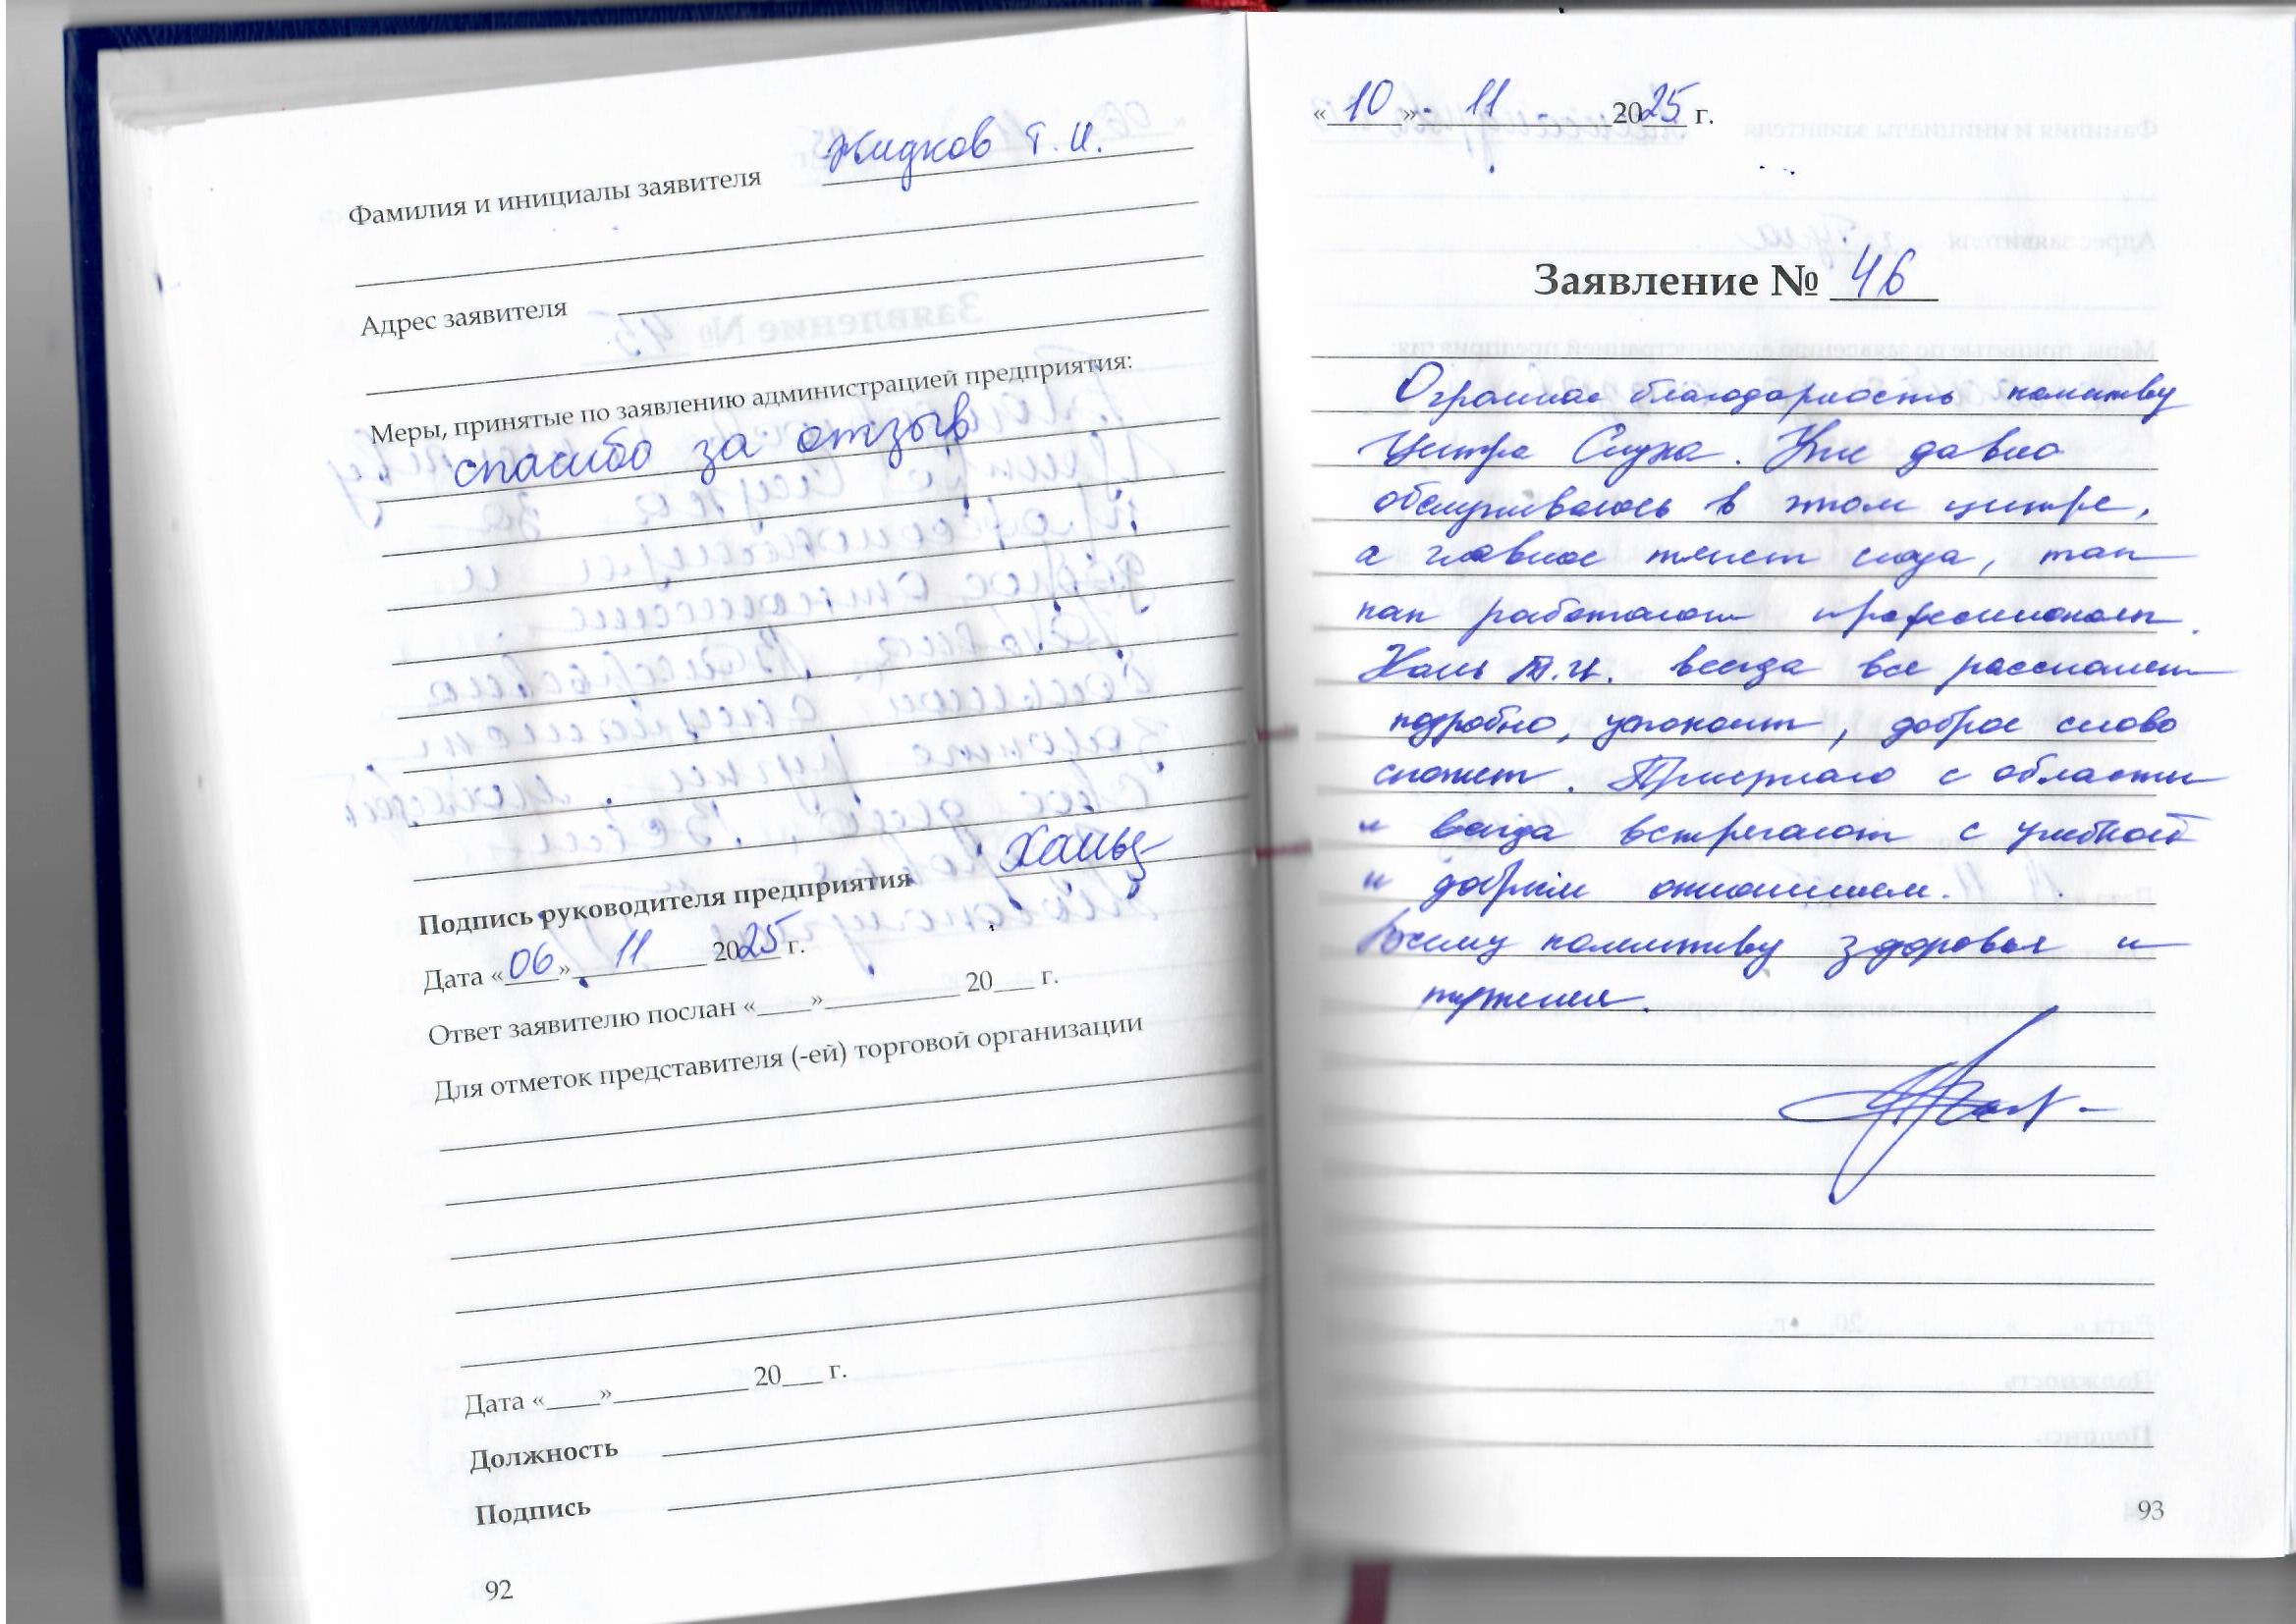 Фамилия и инициалы заявителя Жидков Т. И.
Адрес заявителя
Меры, принятые по заявлению администрацией предприятия:
спасибо за отзыв
Подпись руководителя предприятия
Дата «06» 11 2025 г.
Ответ заявителю послан «____»__________ 20___ г.
Для отметок представителя (-ей) торговой организации
Дата «____»__________ 20___ г.
Должность
Подпись
92
«10» 11 2025 г.
Заявление № 46
Огромная благодарность коллективу
Центра Слуха. Уже давно
обслуживаюсь в этом центре,
а главное тянет сюда, так
как работают профессионалы.
Хань Т.И. всегда все расскажет
подробно, успокоит, доброе слово
скажет. Приезжаю с области
и всегда встречают с улыбкой
и добрым отношением.
Всему коллективу здоровья и
терпения.
93